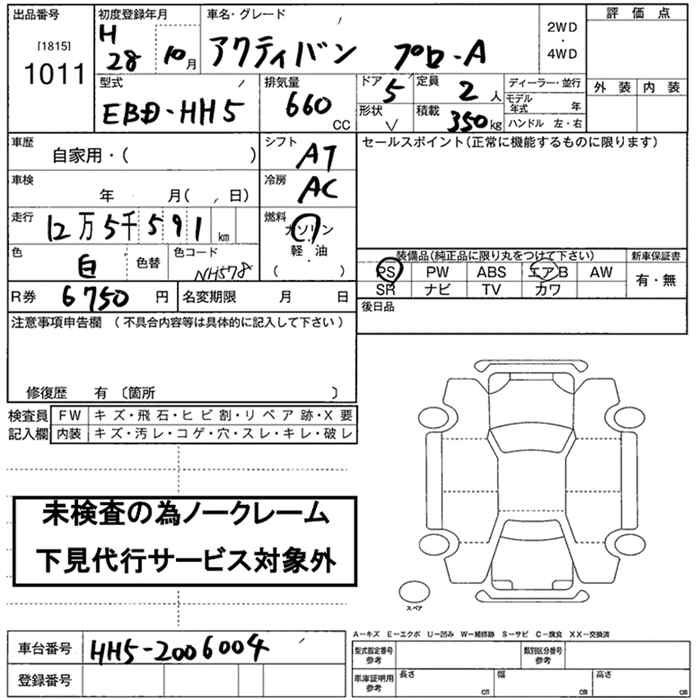 出品番号
[1815]
1011
初度登録年月
H
28 10月
車名・グレード
アクティバン プロ-A
2WD
・
4WD
評価点
外装 内装
型式
EBD-HH5
排気量
660
CC
ドア
5
形状
V
定員
2人
積載
350kg
ディーラー・並行
モデル年式 年
ハンドル 左・右
車歴
自家用・( )
シフト
AT
セールスポイント(正常に機能するものに限ります)
車検
年 月( , 日)
冷房
AC
走行
12万5千591km
燃料
ガソリン
軽・油
( )
色
白
色替
色コード
NH578
装備品(純正品に限り丸をつけて下さい)
新車保証書
PS PW ABS エアB AW
SR ナビ TV カワ
有・無
R券
6750円
名変期限 月 日
後日品
注意事項申告欄 (不具合内容等は具体的に記入して下さい)
修復歴 有 〔箇所 〕
検査員記入欄
FW キズ・飛石・ヒビ割・リペア跡・X要
内装 キズ・汚レ・コゲ・穴・スレ・キレ・破レ
未検査の為ノークレーム
下見代行サービス対象外
スペア
車台番号
HH5-2006004
登録番号
A-キズ E-エクボ U-凹み W-補修跡 S-サビ C-腐食 XX-交換済
型式指定番号
参考
類別区分番号
参考
車庫証明用
参考
長さ
cm
幅
cm
高さ
cm